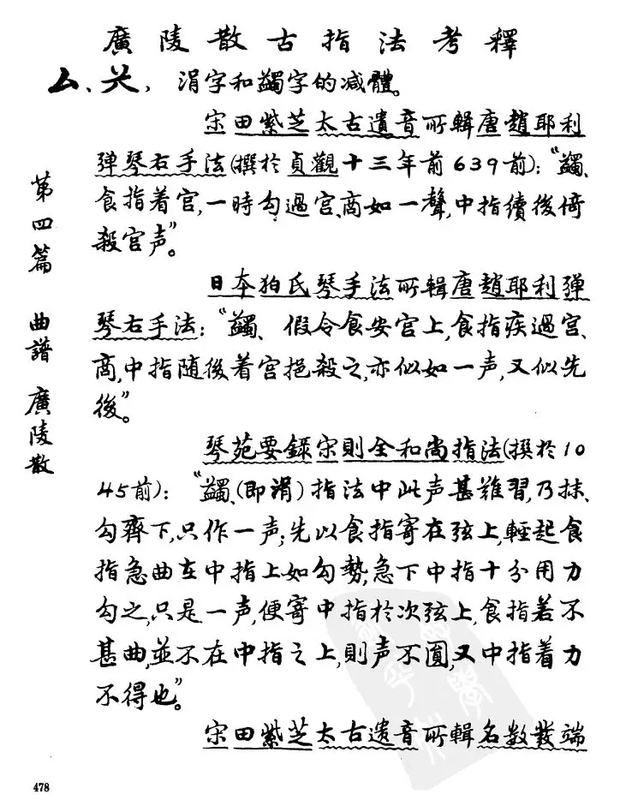 廣陵散古指法考釋
厶、㕕,涓字和蠲字的减體。
宋田紫芝太古遺音所輯唐趙耶利
弹琴右手法(撰於貞觀十三年前639前):“蠲、
食指着宫,一時勾過宫、商如一聲,中指續後倚
殺宫声”。
日本狛氏琴手法所輯唐趙耶利弹
琴右手法:“蠲、假令食安宫上,食指疾過宫、
商,中指随後着宫挹殺之,亦似如一声,又似先
後”。
琴苑要錄宋則全和尚指法(撰於10
45前):“蠲、(即涓)指法中此声甚难習,乃抹、
勾齊下,只作一声;先以食指寄在弦上,輕起食
指急曲在中指上如勾勢,急下中指十分用力
勾之,只是一声,便寄中指於次弦上,食指若不
甚曲,並不在中指之上,則声不圓,又中指着力
不得也”。
宋田紫芝太古遺音所輯名数發端
第四篇 曲譜 廣陵散
478